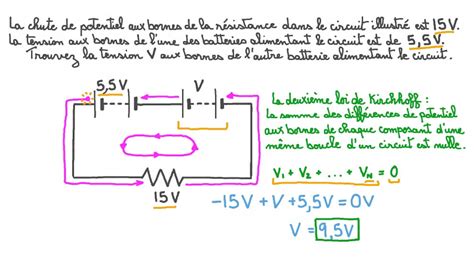 La chute de potentiel aux bornes de la résistance dans le circuit illustré est 15 V.
La tension aux bornes de l'une des batteries alimentant le circuit est de 5,5 V.
Trouvez la tension V aux bornes de l'autre batterie alimentant le circuit.
5,5 V V
La deuxième loi de Kirchhoff :
La somme des différences de potentiel
aux bornes de chaque composant d'une
même boucle d'un circuit est nulle.
V₁ + V₂ + ... + V_N = 0
15 V
-15V + V + 5,5V = 0V
V = 9,5V